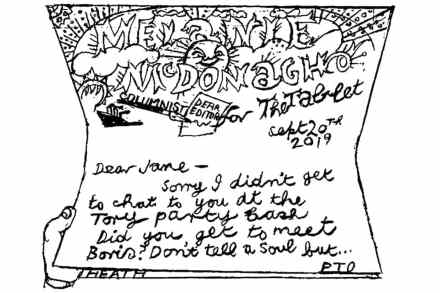 MELANIE
McDONAGH
COLUMNIST
DEAR
EDITOR
for The Tablet
Sept 20TH
2019
Dear Jane —
Sorry I didn't get
to chat to you at the
Tory party bash
Did you get to meet
Boris? Don't tell a soul but...
PTO
HEATH